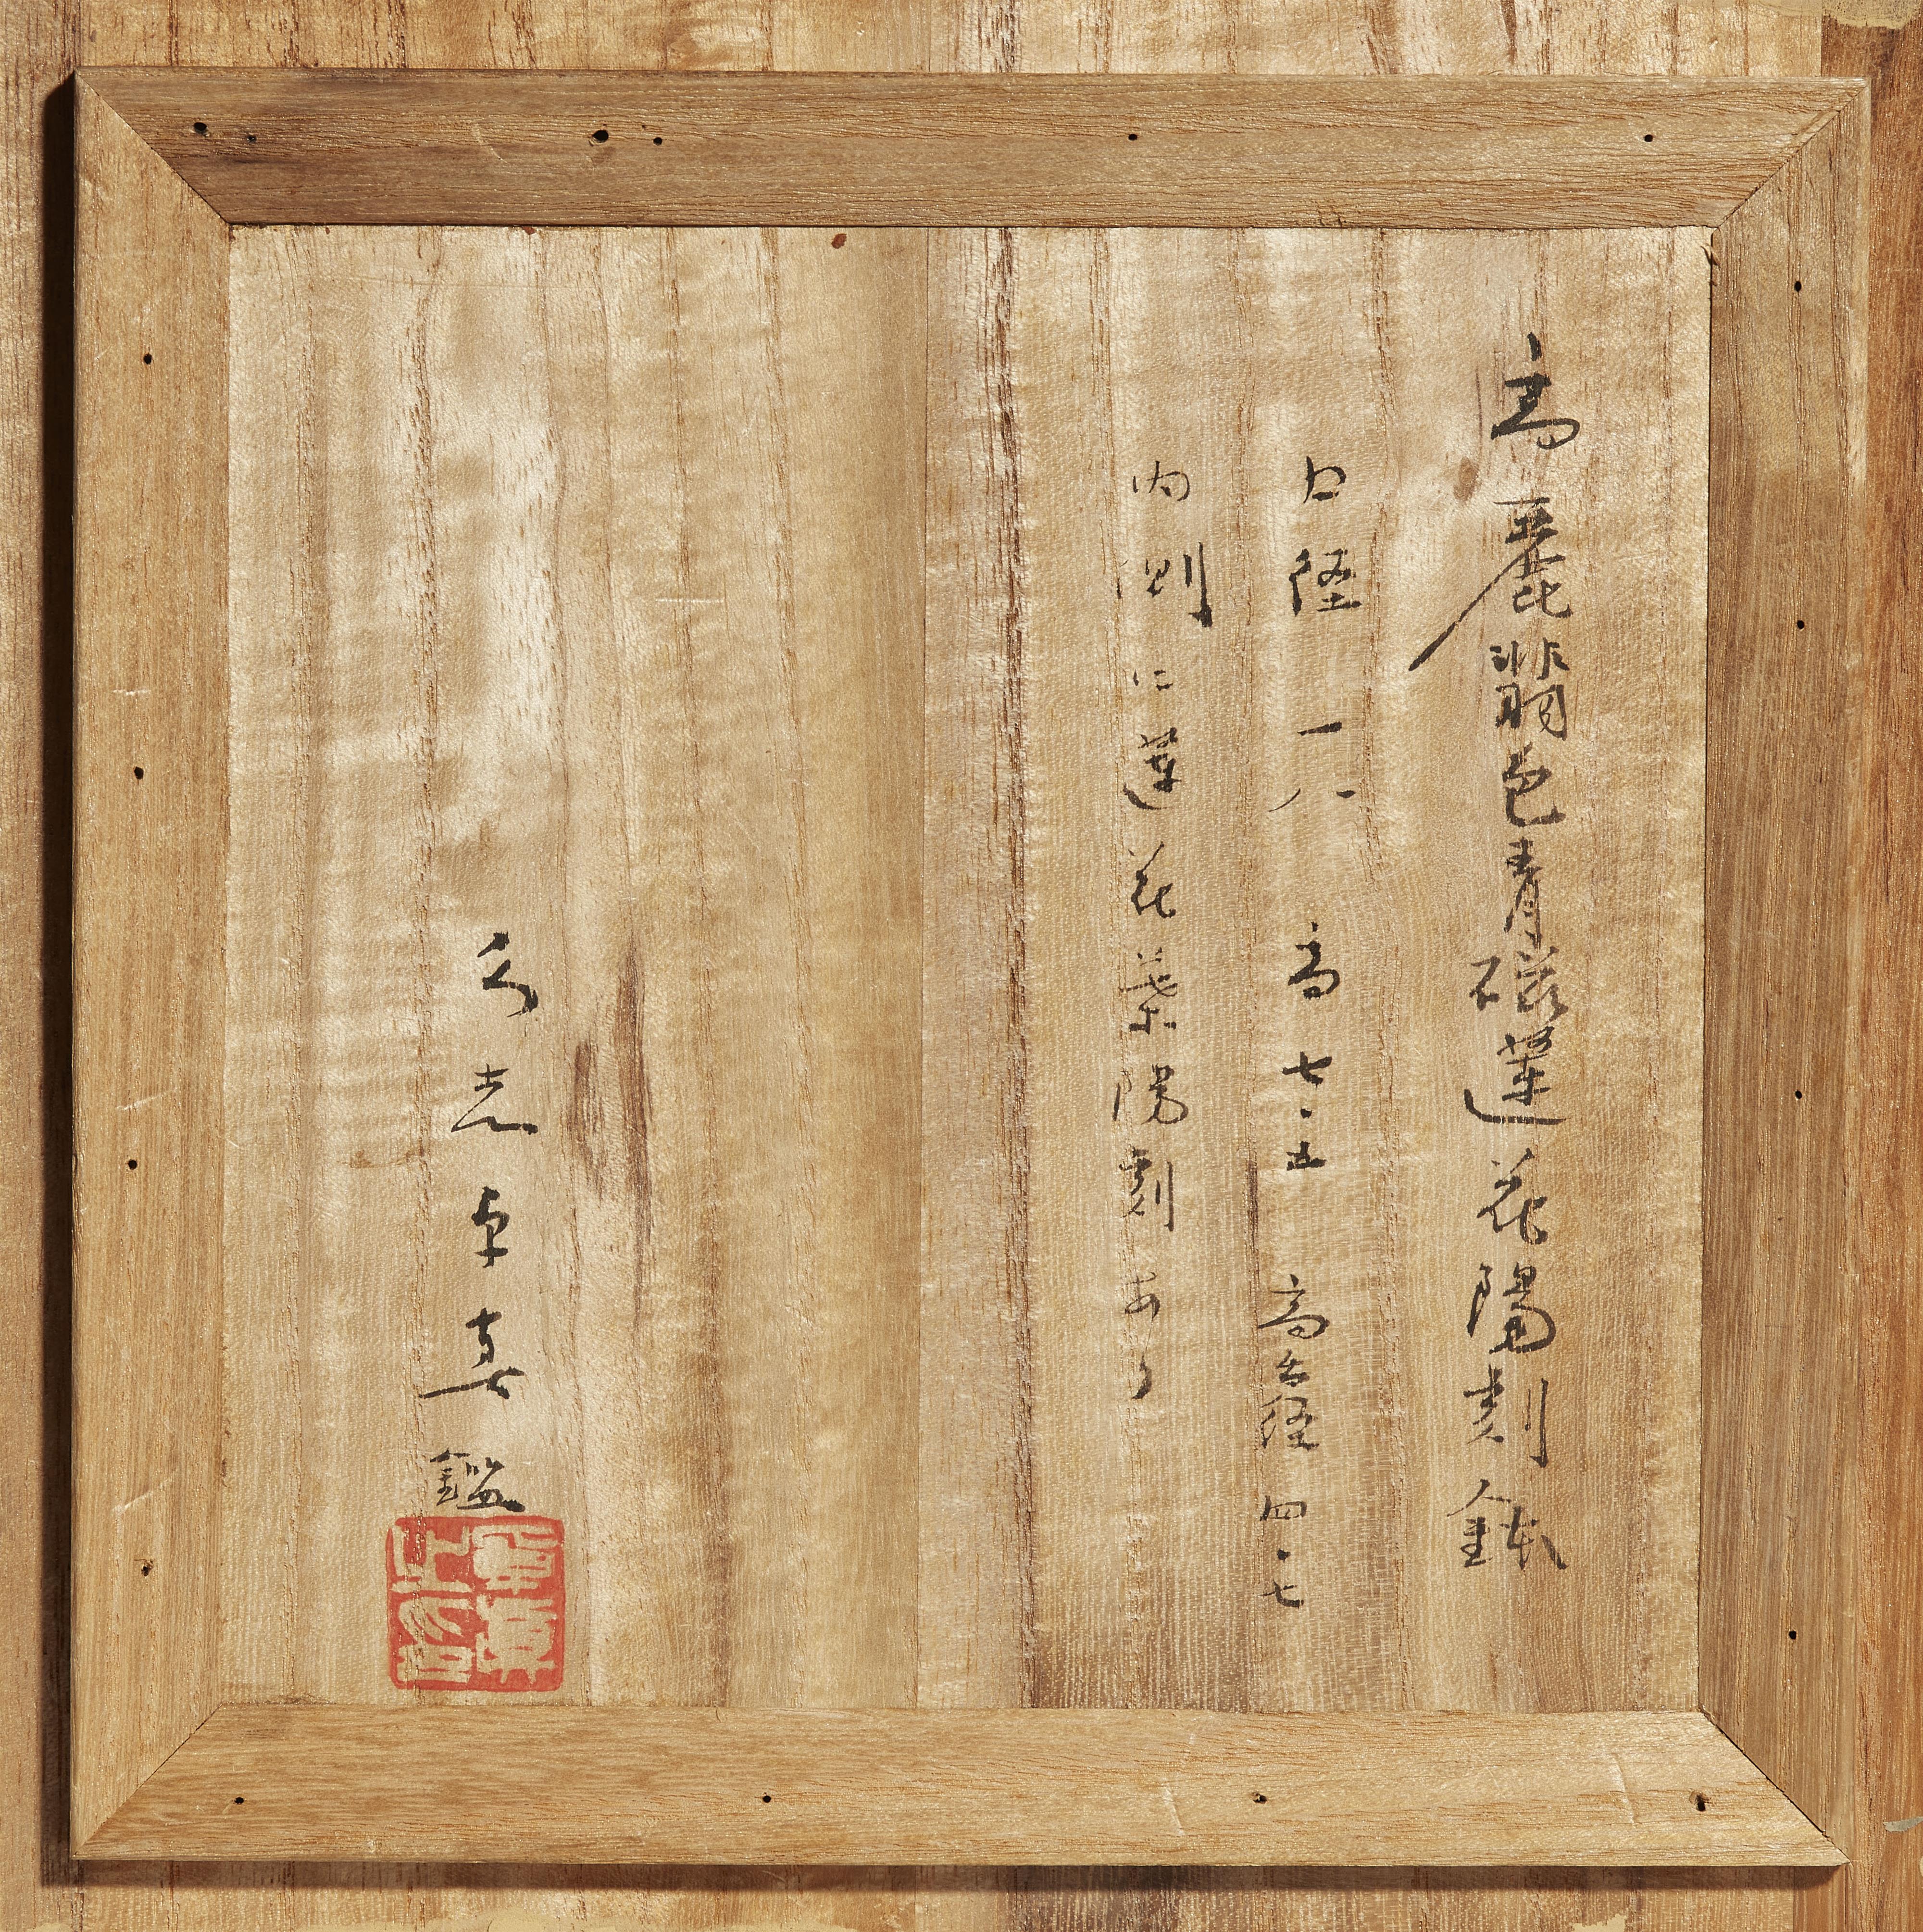 高麗翡色青磁蓮花陽刻鉢
口径 一八 高 七・五 高台径 四・七
内側に蓮花葉陽刻あり
久志卓真鑑
卓真之印